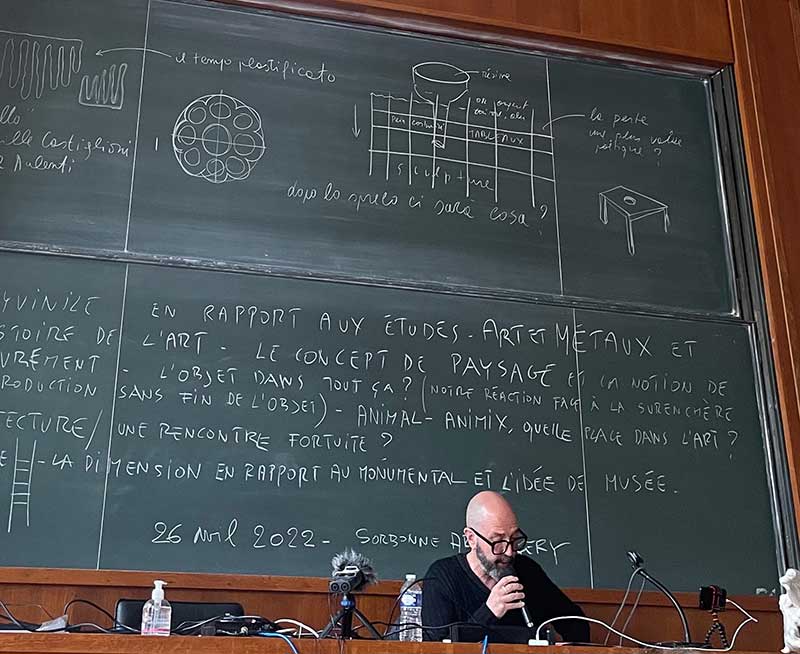 il tempo plastificato
llo"
ille Castiglioni
e Aulenti
résine
TABLEAUX
sculpture
dopo lo spreco ci sarà cosa?
la perte
une plus value
poétique?
YVINILE
STOIRE DE
UVREMENT
RODUCTION
TECTURE/
EN RAPPORT AUX ÉTUDES - ART ET MÉTAUX ET
L'ART - LE CONCEPT DE PAYSAGE ET LA NOTION DE
- L'OBJET DANS TOUT ÇA? (NOTRE RÉACTION FACE À LA SURENCHÈRE
SANS FIN DE L'OBJET) - ANIMAL-ANIMIX, QUELLE PLACE DANS L'ART?
UNE RENCONTRE FORTUITE?
E - LA DIMENSION EN RAPPORT AU MONUMENTAL ET L'IDÉE DE MUSÉE.
26 avril 2022 - SORBONNE
ERY